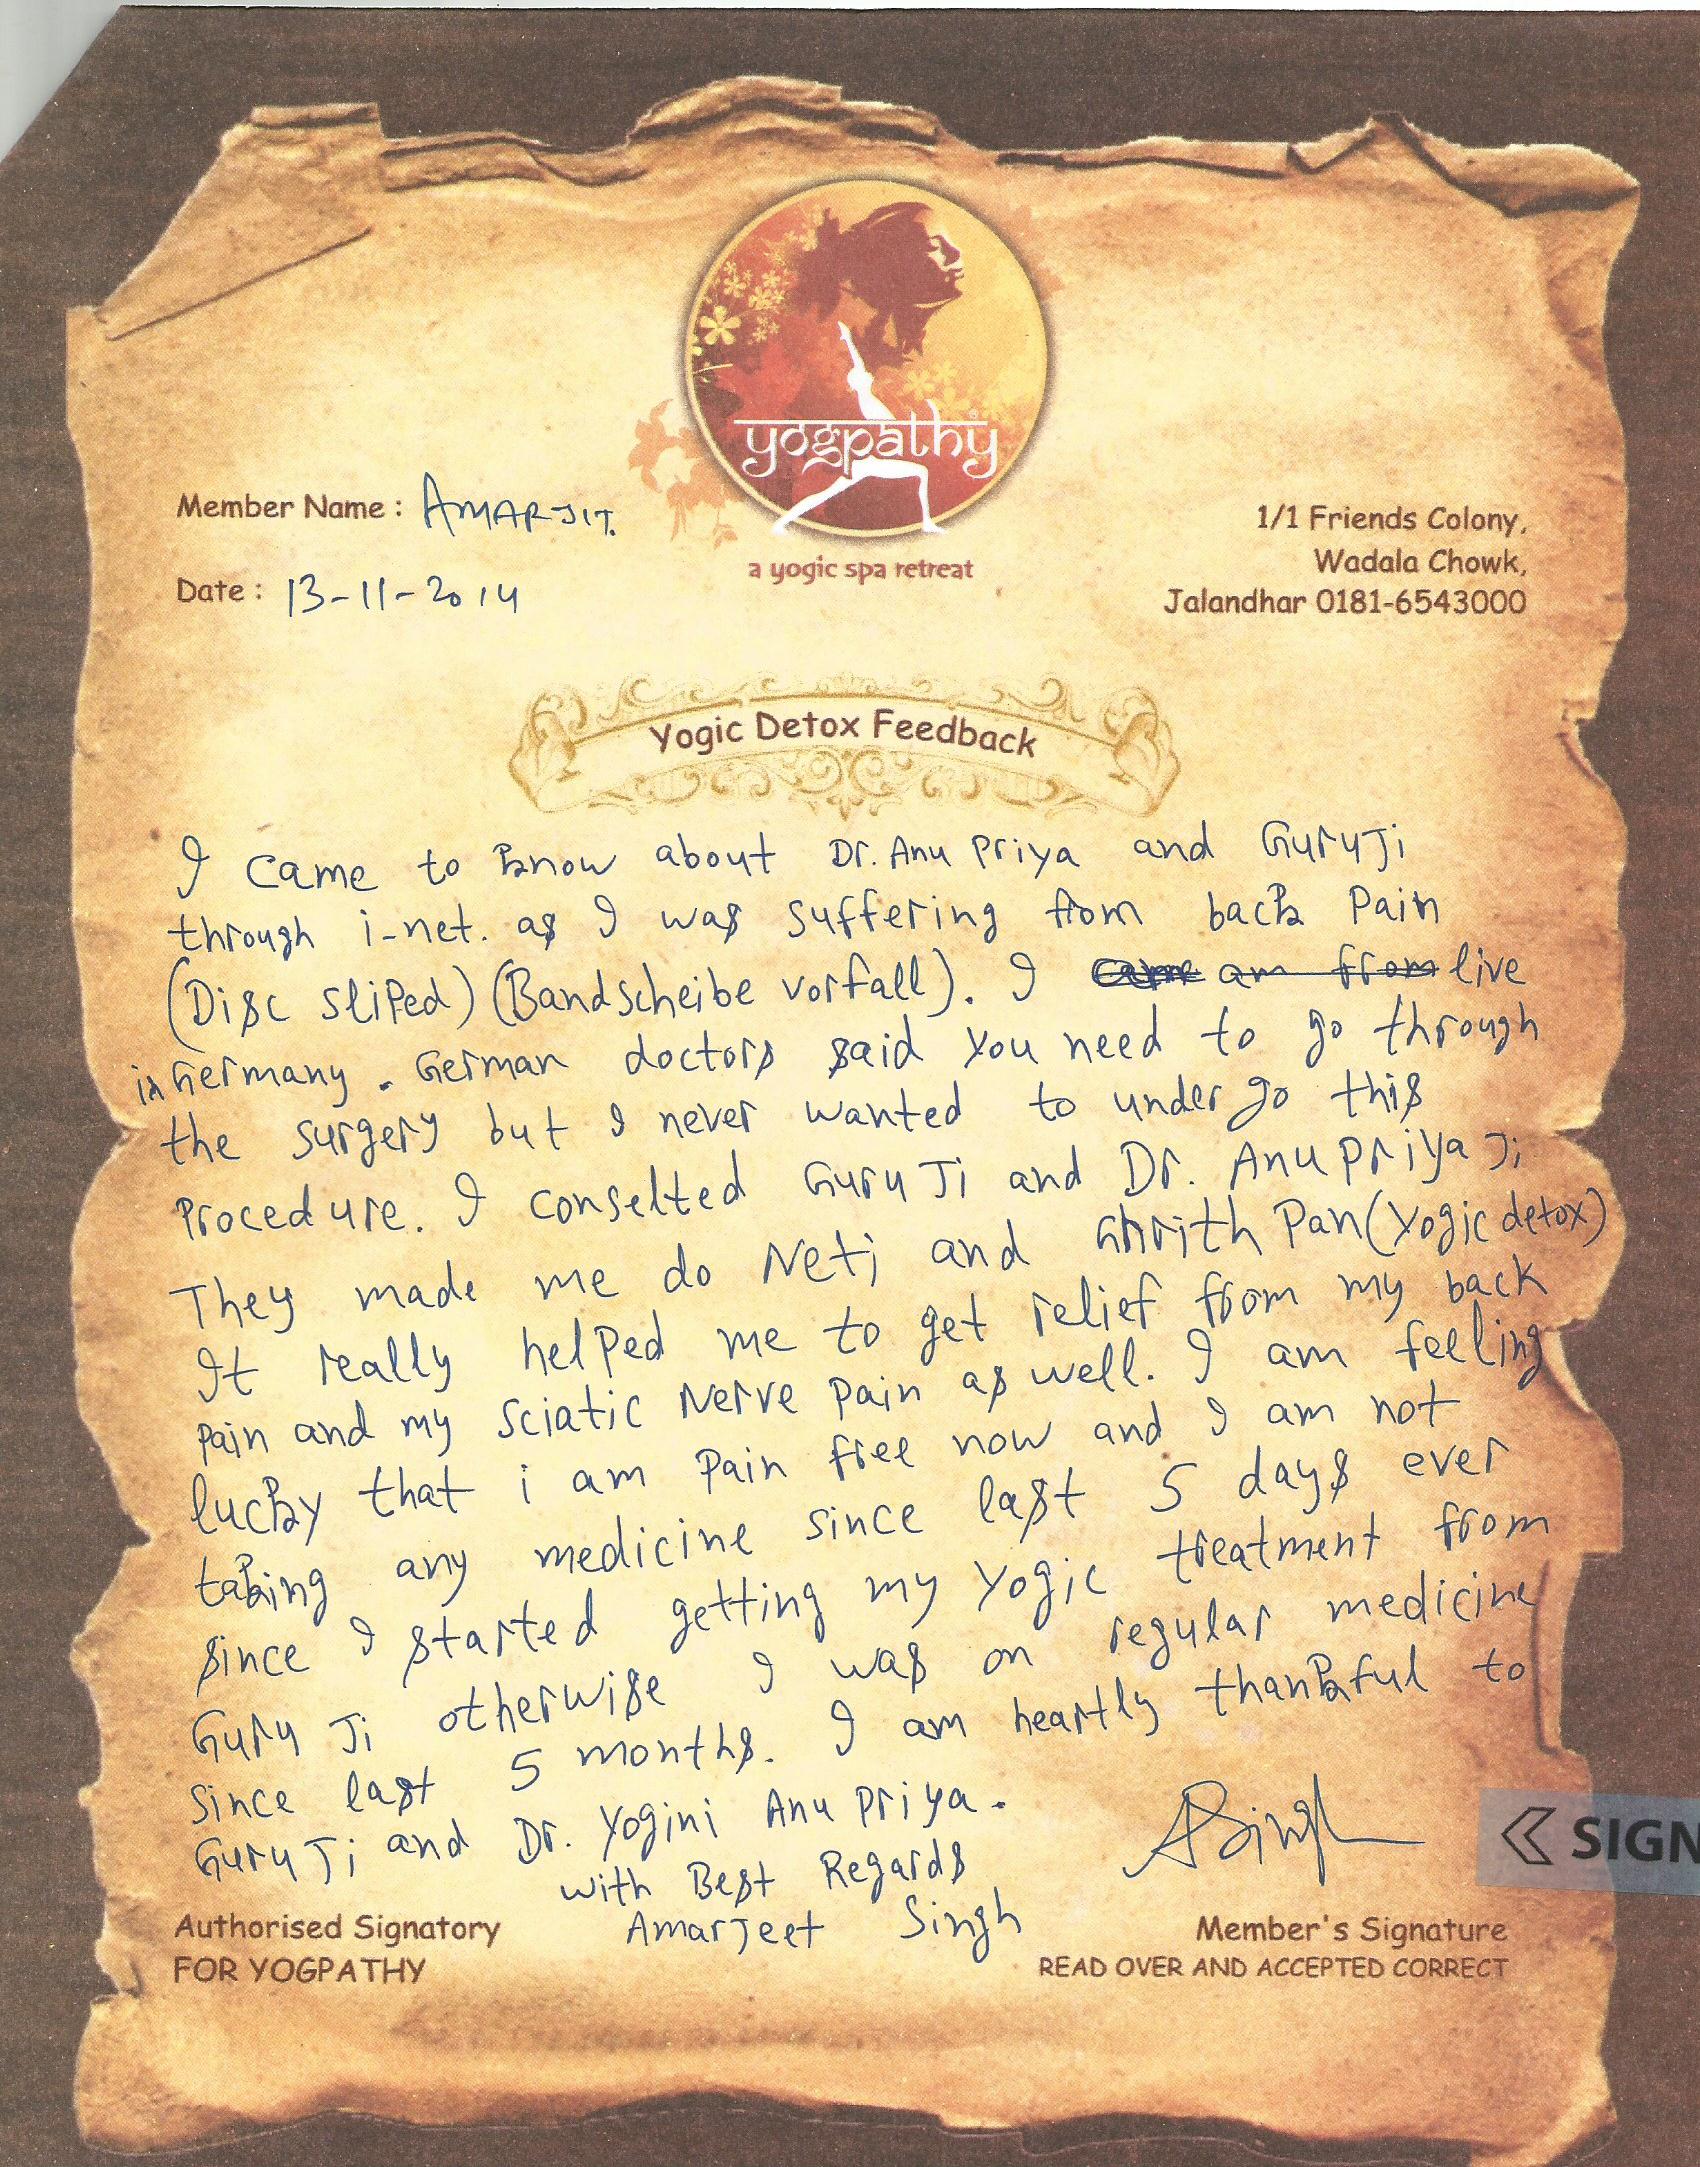 yogpathy
a yogic spa retreat
Member Name : AMARJIT.
Date : 13-11-2014
1/1 Friends Colony,
Wadala Chowk,
Jalandhar 0181-6543000
Yogic Detox Feedback
I came to know about Dr. Anu Priya and GuruJi
through i-net. as I was suffering from back Pain
(Disc sliped) (Bandscheibe vorfall). I came am from live
in Germany. German doctors said you need to go through
the surgery but I never wanted to under go this
Procedure. I conselted Guru Ji and Dr. Anu Priya Ji
They made me do Neti and Ghrith Pan (Yogic detox)
It really helped me to get relief from my back
pain and my sciatic Nerve pain as well. I am feeling
lucky that i am Pain free now and I am not
taking any medicine since last 5 days ever
since I started getting my Yogic treatment from
Guru Ji otherwise I was on regular medicine
since last 5 months. I am heartly thankful to
Guru Ji and Dr. Yogini Anu Priya.
with Best Regards
Amarjeet Singh
ASingh
SIGN
Authorised Signatory
FOR YOGPATHY
Member's Signature
READ OVER AND ACCEPTED CORRECT